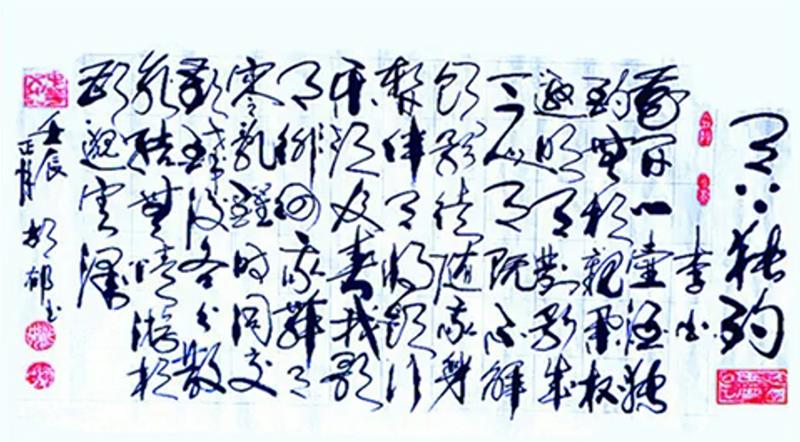 月下独酌
李白
花间一壶酒独
酌無相親举杯
邀明月對影成
三人月既不解
饮影徒随我身
暂伴月将影行
乐须及春我歌
月徘徊我舞影
零乱醒时同交
歡醉後各分散
永结無情游相
期邈雲漢
壬辰
正月
郁书